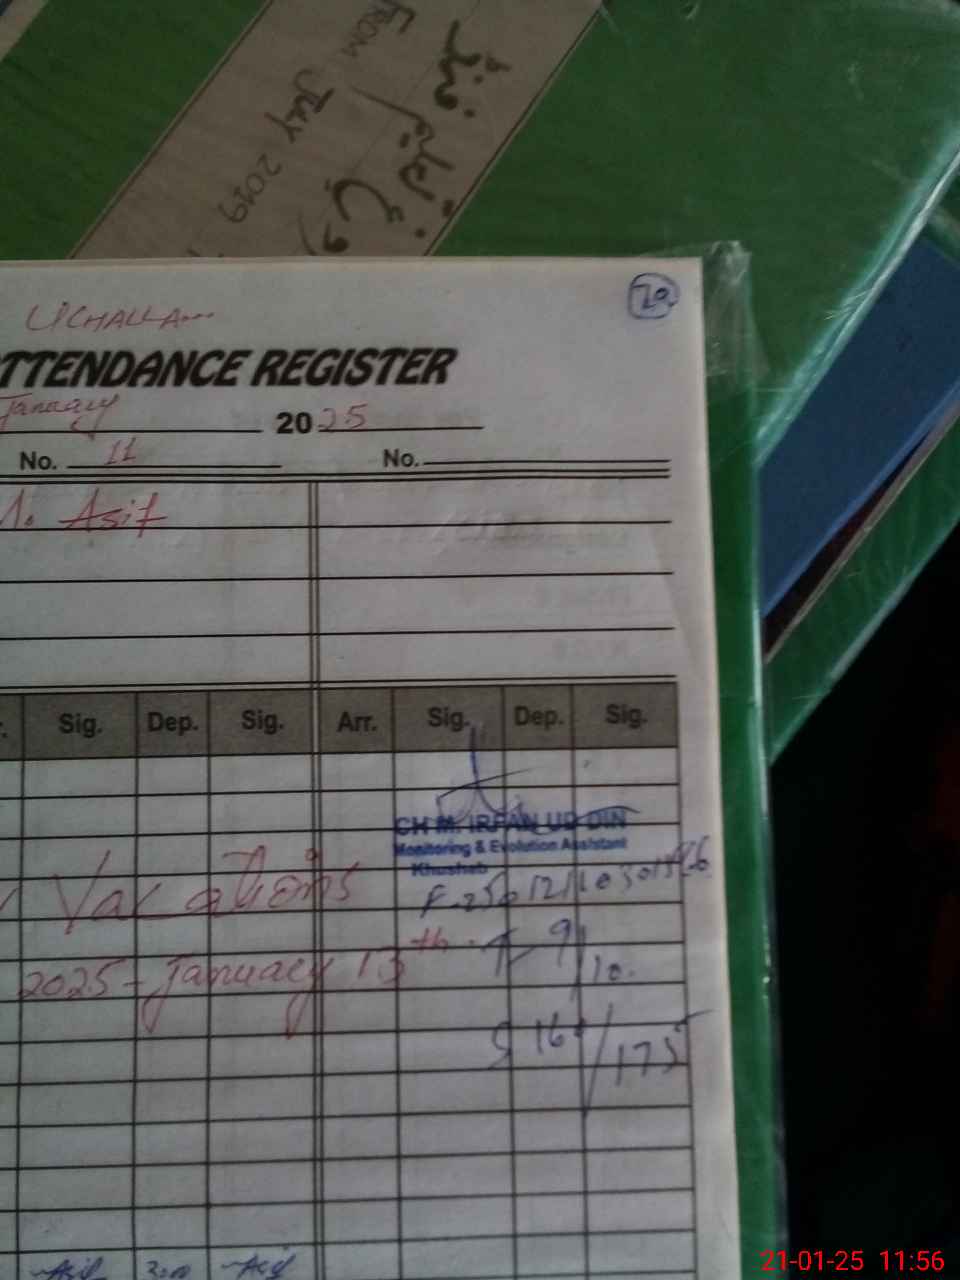 FROM JULY 2019
فروغ تعلیم فنڈ
20
UCHALLA
ATTENDANCE REGISTER
January 2025
No. 11 No.
M. Asif
Sig. Dep. Sig. Arr. Sig. Dep. Sig.
CH M. IRFAN UD DIN
Monitoring & Evolution Assistant
Khushab
Vacations
2025 - January 13th.
T 9/10.
S 160/175
Asif Asif
21-01-25 11:56